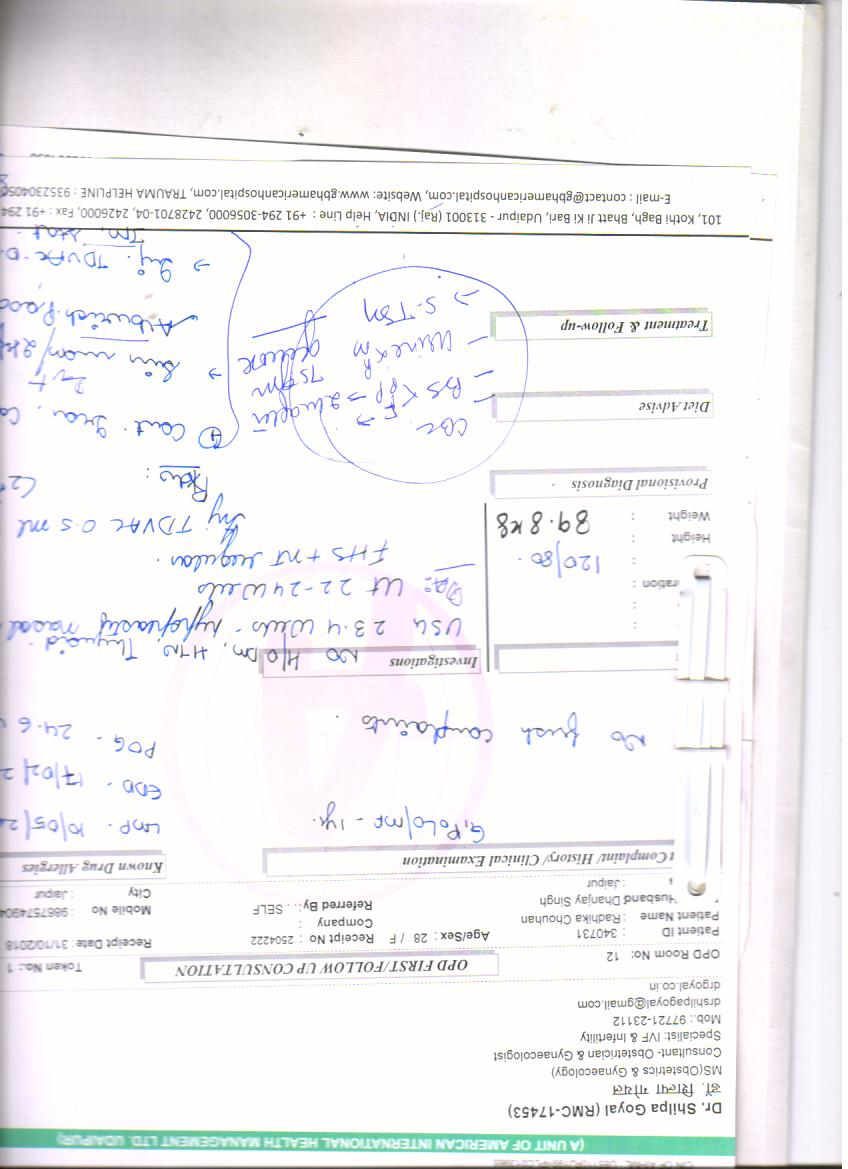 (A UNIT OF AMERICAN INTERNATIONAL HEALTH MANAGEMENT LTD. UDAIPUR)
Dr. Shilpa Goyal (RMC-17453)
डॉ. शिल्पा गोयल
MS(Obstetrics & Gynaecology)
Consultant- Obstetrician & Gynaecologist
Specialist: IVF & Infertility
Mob.: 97721-23112
drshilpagoyal@gmail.com
drgoyal.co.in
OPD Room No: 12 OPD FIRST/FOLLOW UP CONSULTATION Token No.: 1
Patient ID : 340731 Age/Sex : 28 / F Receipt No : 2504222 Receipt Date : 31/10/2018
Patient Name : Radhika Chouhan Company : Mobile No : 986757490
Husband Dhanjay Singh Referred By : . . SELF City : Jaipur
: Jaipur
t Complaint/ History/ Clinical Examination Known Drug Allergies
G1P0L0/MF - 1yr. LMP - 10/05/2
EDD - 17/02/2
No fresh complaints . POG - 24.6
Investigations
No H/O DM, HTN, Thyroid
USG 23.4 Weeks - hypoplastic nasal
Ut 22-24 Weeks
ration :
120/80 . FHS + nt regular .
Height :
Weight : 89.8 kg Inj TDVAC 0.5 ml
Provisional Diagnosis
Adv :
CBC
Diet Advise
BS < F PP → 2 hrs after 75 gm glucose
Urine R M
→ S. TSH
Treatment & Follow-up
Cont. Iron, Ca
→ Inj. TDVAC 0.
Im, stat
101, Kothi Bagh, Bhatt Ji Ki Bari, Udaipur - 313001 (Raj.) INDIA, Help Line : +91 294-3056000, 2428701-04, 2426000, Fax : +91 294
E-mail : contact@gbhamericanhospital.com, Website: www.gbhamericanhospital.com, TRAUMA HELPLINE : 9352304050